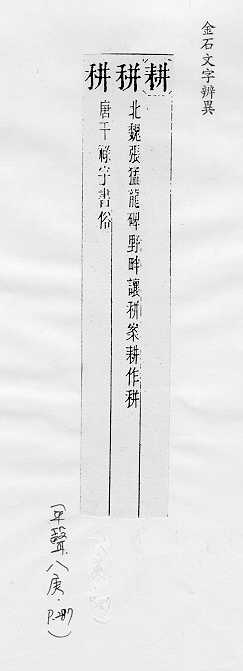 金石文字辨異
耕
秔 北魏張猛龍碑野畔讓秔案耕作秔
秔 唐干祿字書俗
(平聲.八庚.P.287)